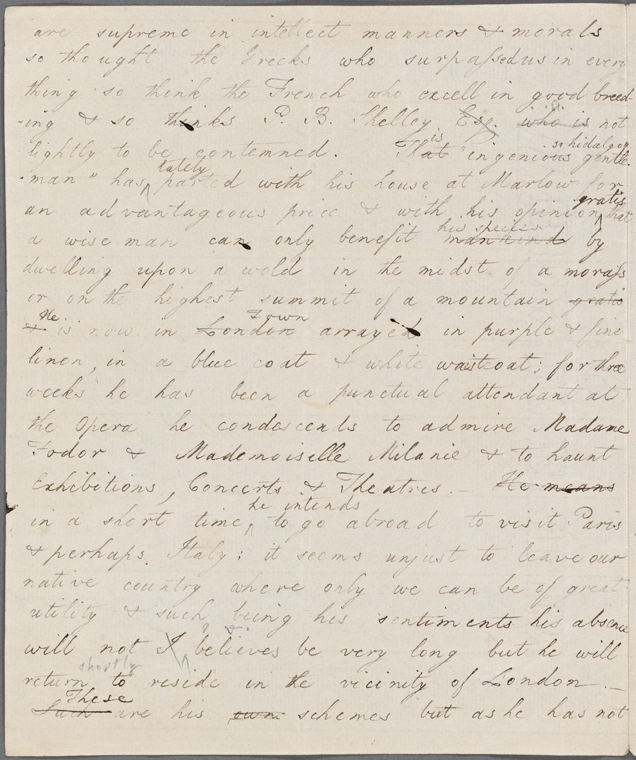 are supreme in intellect manners & morals
so thought the Greeks who surpassed us in every
thing so think the French who excell in good breed-
-ing & so thinks P. B. Shelley Esq. who is not
is
si hidalgo
lightly to be contemned. That ingenious gentle-
lately
"man" has parted with his house at Marlow for
gratis
an advantageous price & with his opinion that
his species
a wise man can only benefit mankind by
dwelling upon a wold in the midst of a morass
or on the highest summit of a mountain gratis
He Town
is now in London arrayed in purple & fine
linen, in a blue coat & white waistcoat; for three
weeks he has been a punctual attendant at
the Opera he condescends to admire Madame
Fodor & Mademoiselle Milanie & to haunt
Exhibitions, Concerts & Theatres. – He means
he intends
in a short time to go abroad to visit Paris
& perhaps Italy: it seems unjust to leave our
native country where only we can be of great
utility & such being his sentiments his absence
will not I believes be very long but he will
shortly
return to reside in the vicinity of London –
These
Such are his own schemes but as he has not